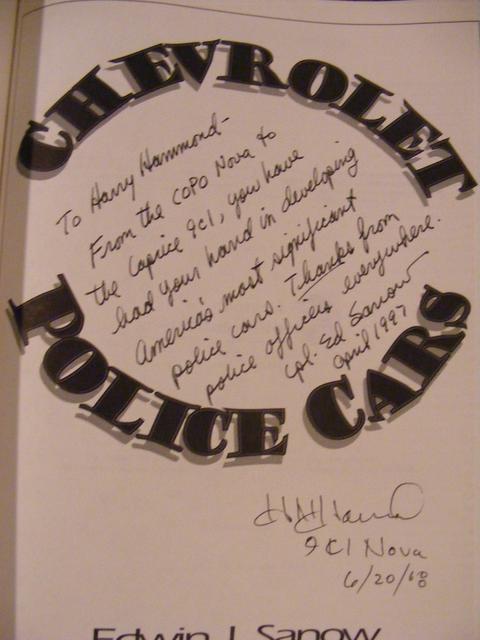 CHEVROLET
To Harry Hammond-
From the COPO Nova to
the Caprice 9C1, you have
had your hand in developing
America's most significant
police cars. Thanks from
police officers everywhere.
Cpl. Ed Sanow
April 1997
POLICE CARS
9C1 Nova
6/20/08
Edwin J. Sanow